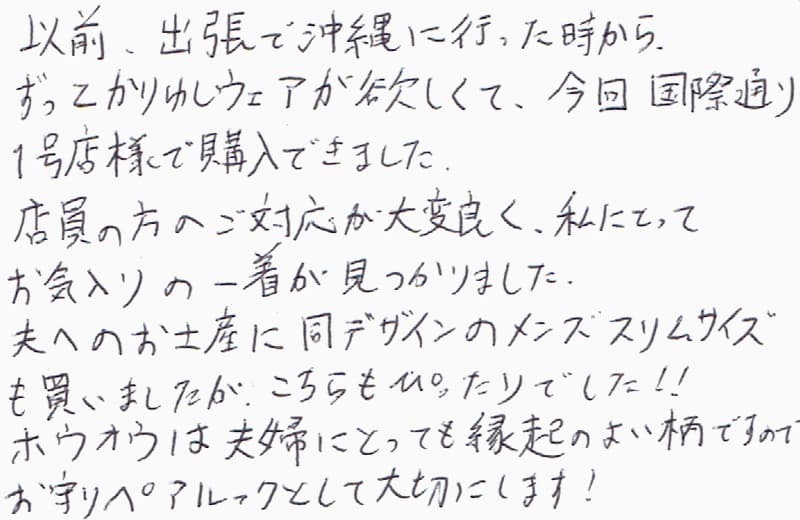 以前、出張で沖縄に行った時から、
ずっとかりゆしウェアが欲しくて、今回 国際通り
1号店様で購入できました。
店員の方のご対応が大変良く、私にとって
お気入りの一着が見つかりました。
夫へのお土産に同デザインのメンズスリムサイズ
も買いましたが、こちらもぴったりでした!!
ホウオウは夫婦にとっても縁起のよい柄ですので
お守りペアルックとして大切にします!